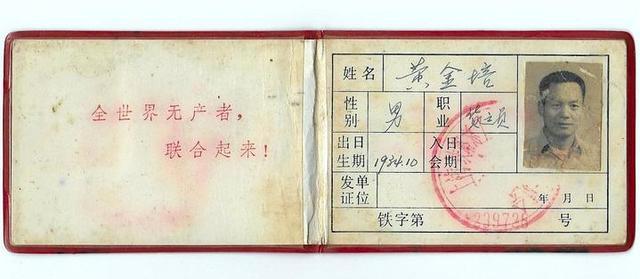 全世界无产者，
联合起来！
姓名 黄金培
性别 男 职业 员
出生日期 1934.10 入会日期
发证单位
年 月 日
铁字第 239736 号